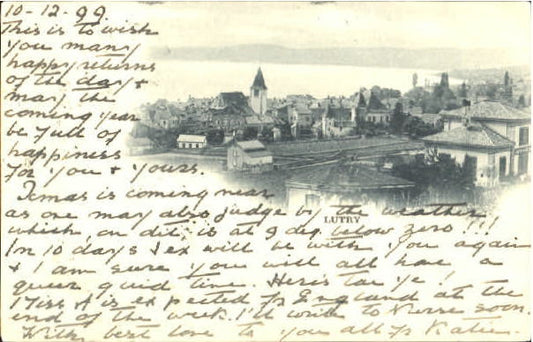 10-12.99.
This is to wish
you many
happy returns
of the day &
may the
coming year
be full of
happiness
for you & yours.
Xmas is coming near
as one may also judge by the weather
LUTRY
which on dit is at 9 deg. below zero!!!
In 10 days will be with you again
& I am sure you will all have a
queer quid time. Here's to ye!
Miss A is expected fr England at the
end of the week. I'll write to soon.
With best love to you all fr Katie.